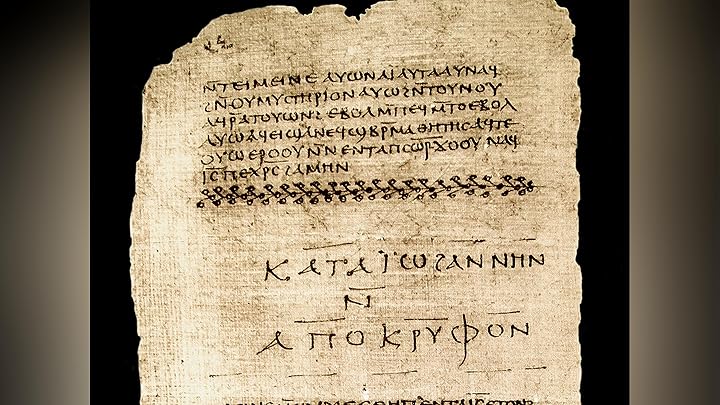 ⲛ̅ⲧⲉⲓⲙⲉⲓⲛⲉ ⲁⲩⲱ ⲛⲁⲓ̈ ⲁⲩⲧⲁⲁⲩ ⲛⲁϥ
ϩⲛ̅ⲟⲩⲙⲩⲥⲧⲏⲣⲓⲟⲛ ⲁⲩⲱ ϩⲛ̅ⲧⲟⲩⲛⲟⲩ
ⲁϥⲣ̅ⲁⲧⲟⲩⲱⲛϩ ⲉⲃⲟⲗ ⲙ̅ⲡⲉϥⲙ̅ⲧⲟ ⲉⲃⲟⲗ
ⲁⲩⲱ ⲁϥⲉⲓ ϣⲁⲛⲉϥϣⲃⲣ̅ⲙⲁⲑⲏⲧⲏⲥ ⲁϥⲧⲉ
ⲟⲩⲱ ⲉⲣⲟⲟⲩ ⲛ̅ⲛⲉⲛⲧⲁⲡⲥⲱ̅ⲣ̅ ϫⲟⲟⲩ ⲛⲁϥ
ⲓ̅ⲥ̅ ⲡⲉⲭⲣ̅ⲥ̅ ϩⲁⲙⲏⲛ
ⲕⲁⲧⲁ ⲓ̈ⲱϩⲁⲛⲛⲏⲛ
ⲛ̅
ⲁⲡⲟⲕⲣⲩⲫⲟⲛ